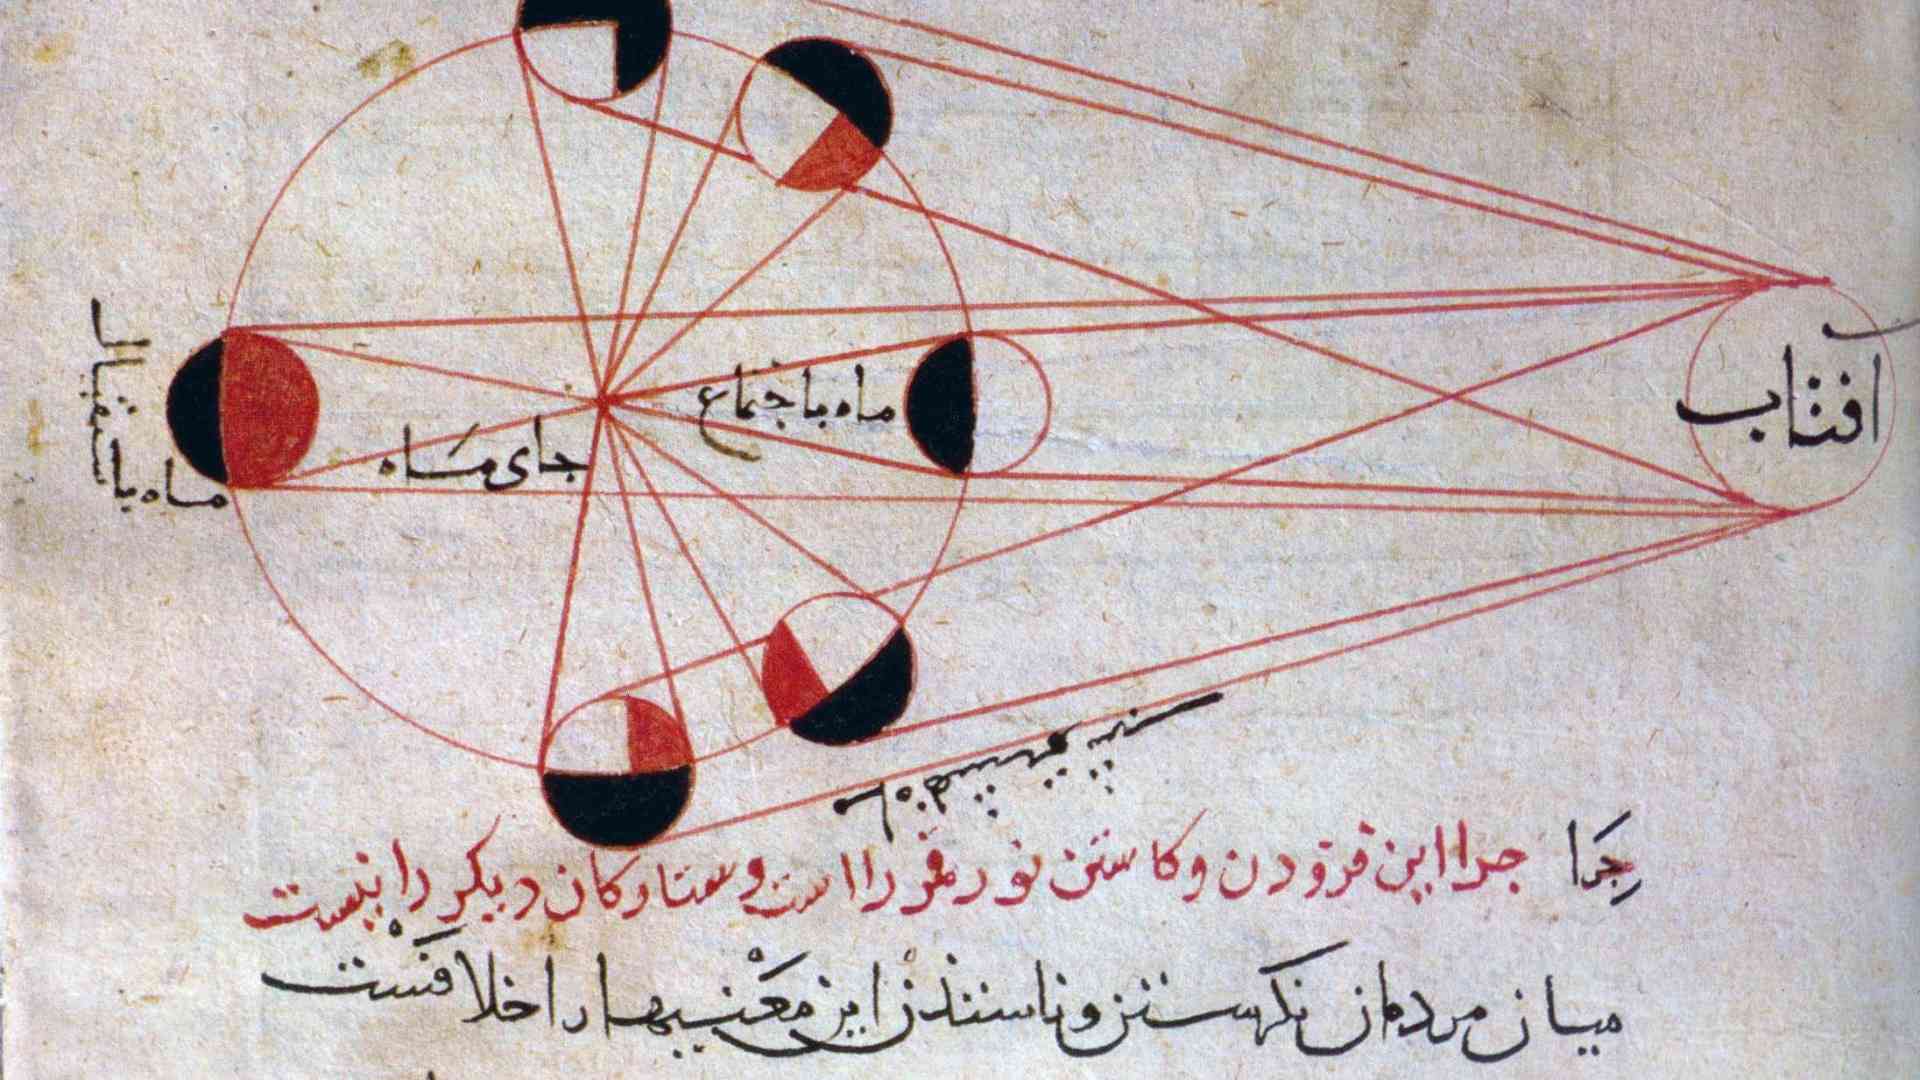 افتاب
ماه باجتماع
جای ماه
ماه باستقبال
چرا
چرا این فزودن و کاستن نور قمر را است و ستارکان دیکر را نیست
میان مردمان نکرستن و ناسنندن این معنیها را خلافست